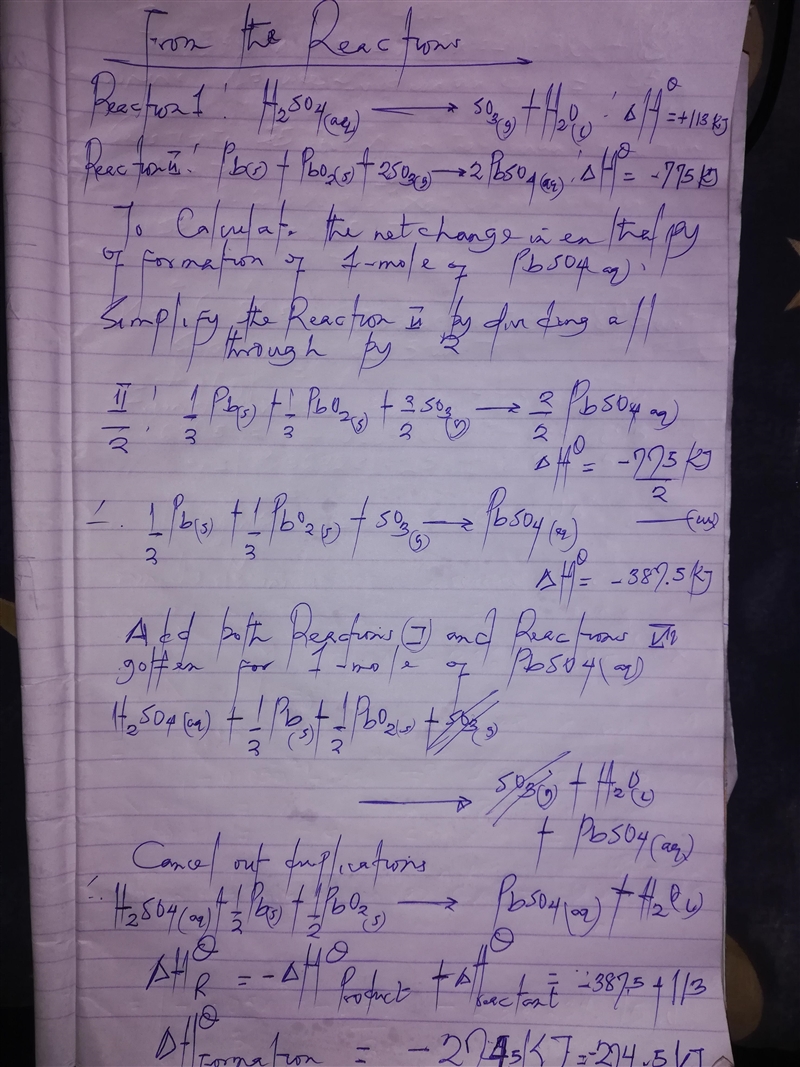 From the Reactions
Reaction 1: H2SO4(aq) → SO3(g) + H2O(l) : ΔH^θ = +113 KJ
Reaction II: Pb(s) + PbO2(s) + 2SO3(g) → 2PbSO4(aq) : ΔH^θ = -775 KJ
To Calculate the net change in enthalpy
of formation of 1-mole of PbSO4 aq).
Simplify the Reaction II by dividing all
through by 2
II/2 : 1/2 Pb(s) + 1/2 PbO2(s) + 2/2 SO3(g) → 2/2 PbSO4 aq)
ΔH^θ = -775 KJ/2
∴ 1/2 Pb(s) + 1/2 PbO2(s) + SO3(g) → PbSO4(aq) —(iii)
ΔH^θ = -387.5 KJ
Add both Reactions (I) and Reactions III
gotten for 1-mole of PbSO4(aq)
H2SO4(aq) + 1/2 Pb(s) + 1/2 PbO2(s) + SO3(g)
→ SO3(g) + H2O(l)
+ PbSO4(aq)
Cancel out duplications
∴ H2SO4(aq) + 1/2 Pb(s) + 1/2 PbO2(s) → PbSO4(aq) + H2O(l)
ΔH^θ R = -ΔH^θ Product + ΔH^θ reactant = -387.5 + 113
ΔH^θ Formation = -274.5 KJ = -274.5 KJ